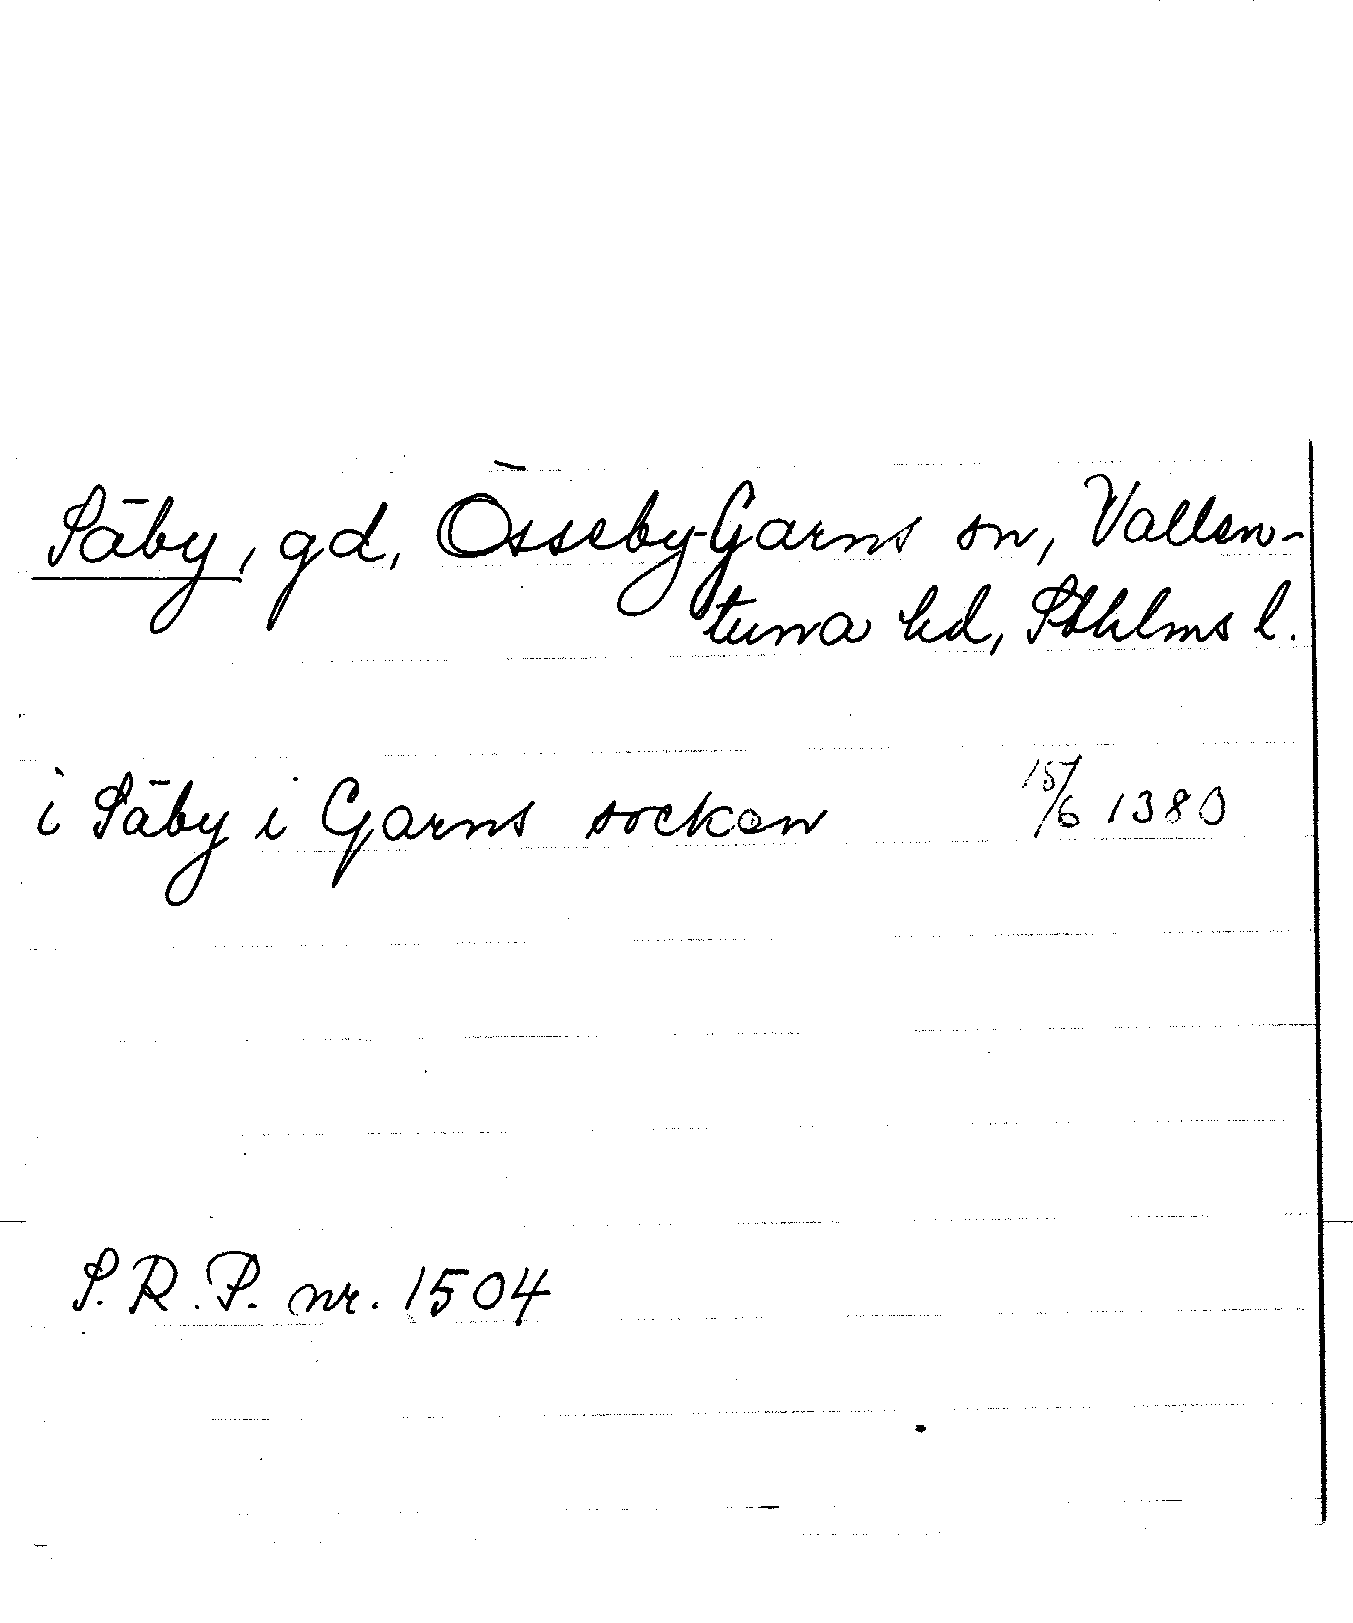 Säby, gd, Össeby-Garns sn, Vallen-
tuna hd, Sthlms l.
i Säby i Garns sockan 15/6 1380
S.R.P. nr. 1504